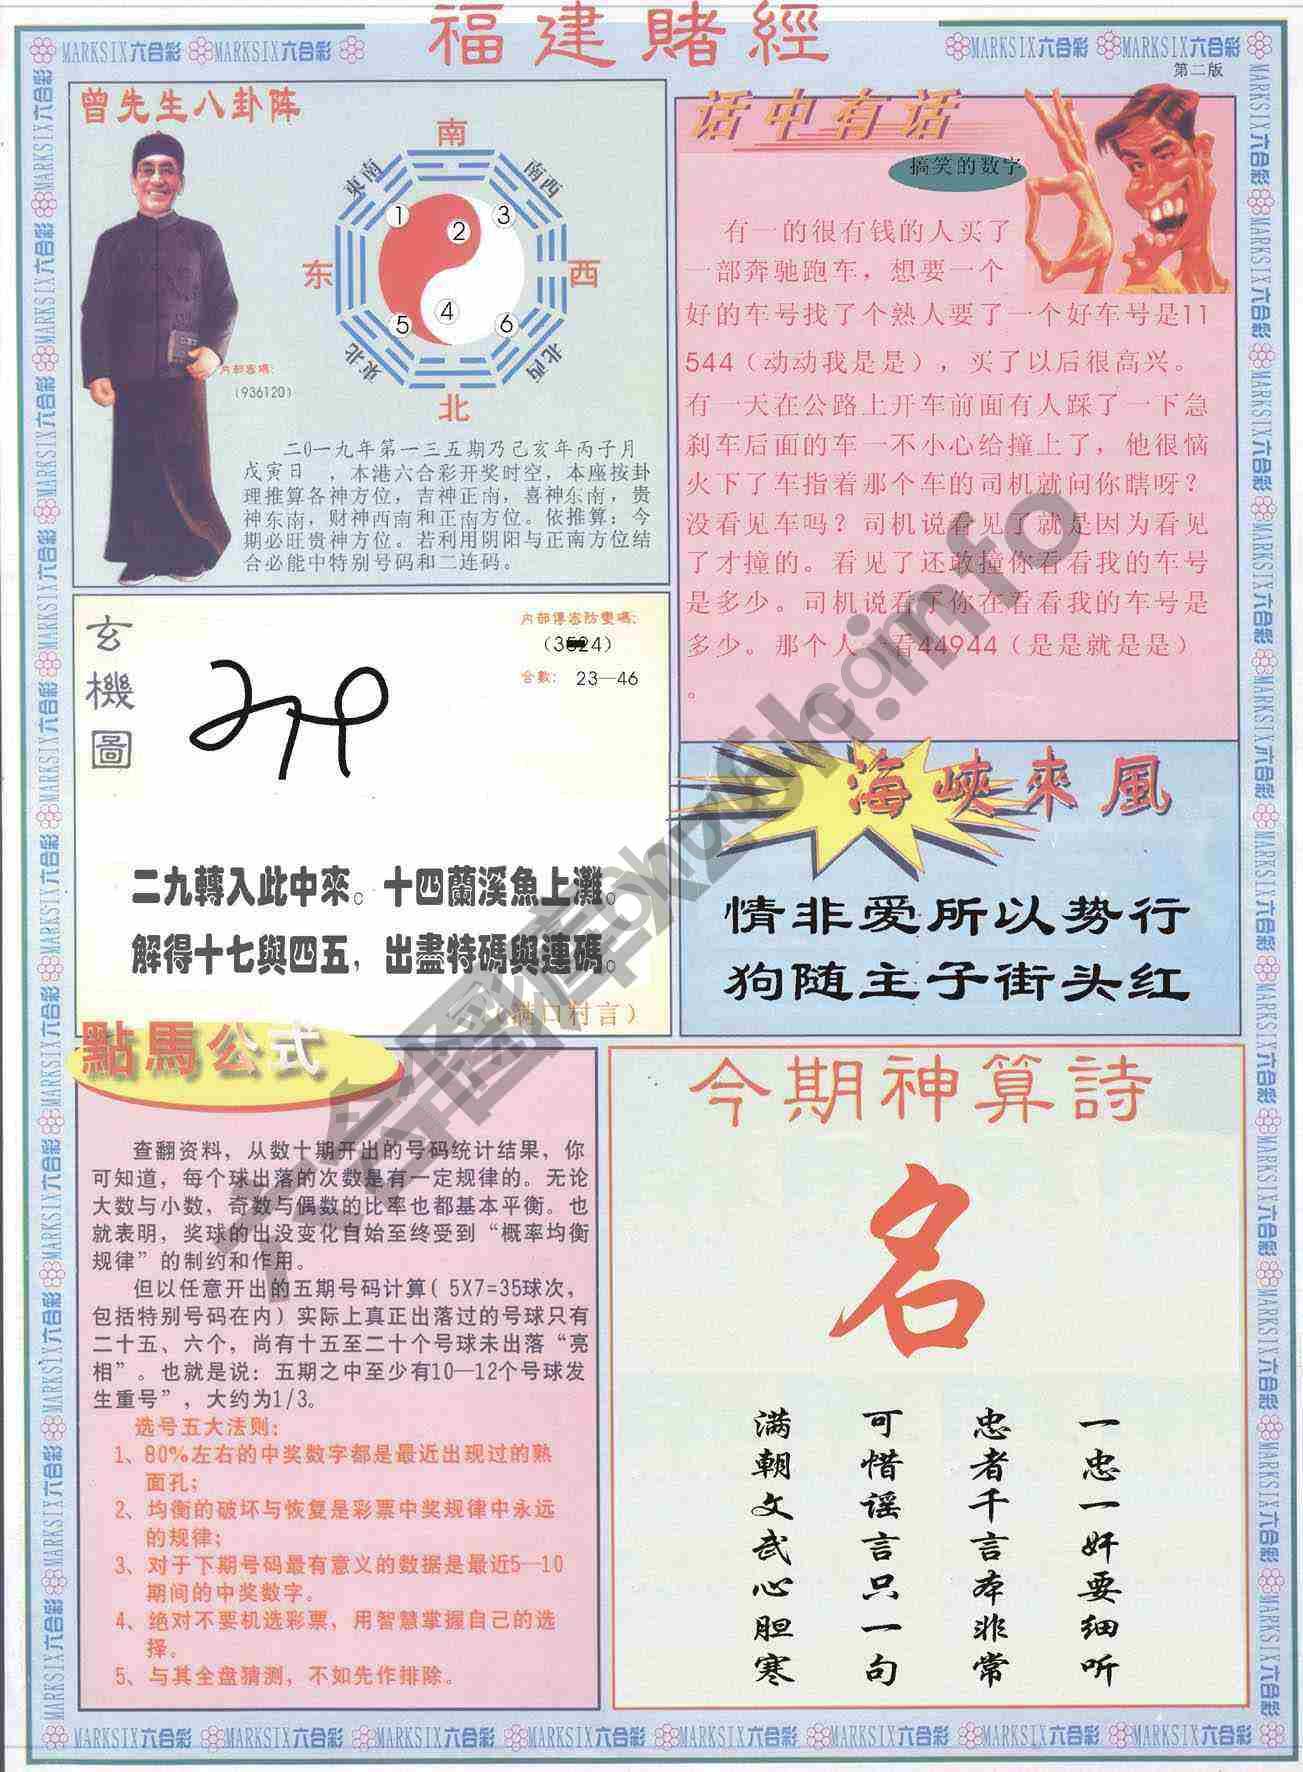 福建賭經
MARKSIX六合彩 MARKSIX六合彩
MARKSIX六合彩 MARKSIX六合彩
第二版
曾先生八卦阵
南
東南
南西
1
2
3
东
西
4
5
6
東北
北西
北
内部密碼:
(936120)
二0一九年第一三五期乃己亥年丙子月
戊寅日 ,本港六合彩开奖时空,本座按卦
理推算各神方位,吉神正南,喜神东南,贵
神东南,财神西南和正南方位。依推算:今
期必旺贵神方位。若利用阴阳与正南方位结
合必能中特别号码和二连码。
话中有话
搞笑的数字
有一的很有钱的人买了
一部奔驰跑车,想要一个
好的车号找了个熟人要了一个好车号是11
544(动动我是是),买了以后很高兴。
有一天在公路上开车前面有人踩了一下急
刹车后面的车一不小心给撞上了,他很恼
火下了车指着那个车的司机就问你瞎呀?
没看见车吗?司机说看见了就是因为看见
了才撞的。看见了还敢撞你看看我的车号
是多少。司机说看了你在看看我的车号是
多少。那个人一看44944(是是就是是)
。
玄機圖
内部傳密防變碼:
(3524)
合數: 23—46
二九轉入此中來。十四蘭溪魚上灘。
解得十七與四五,出盡特碼與連碼。
(满口村言)
海峽來風
情非爱所以势行
狗随主子街头红
點馬公式
查翻资料,从数十期开出的号码统计结果,你
可知道,每个球出落的次数是有一定规律的。无论
大数与小数,奇数与偶数的比率也都基本平衡。也
就表明,奖球的出没变化自始至终受到“概率均衡
规律”的制约和作用。
但以任意开出的五期号码计算( 5X7=35球次,
包括特别号码在内)实际上真正出落过的号球只有
二十五、六个,尚有十五至二十个号球未出落“亮
相”。也就是说:五期之中至少有10—12个号球发
生重号”,大约为1/3。
选号五大法则:
1、80%左右的中奖数字都是最近出现过的熟
面孔;
2、均衡的破坏与恢复是彩票中奖规律中永远
的规律;
3、对于下期号码最有意义的数据是最近5—10
期间的中奖数字。
4、绝对不要机选彩票,用智慧掌握自己的选
择。
5、与其全盘猜测,不如先作排除。
今期神算詩
名
一忠一奸要细听
忠者千言本非常
可惜谣言只一句
满朝文武心胆寒
MARKSIX六合彩 MARKSIX六合彩 MARKSIX六合彩 MARKSIX六合彩 MARKSIX六合彩 MARKSIX六合彩 MARKSIX六合彩 MARKSIX六合彩